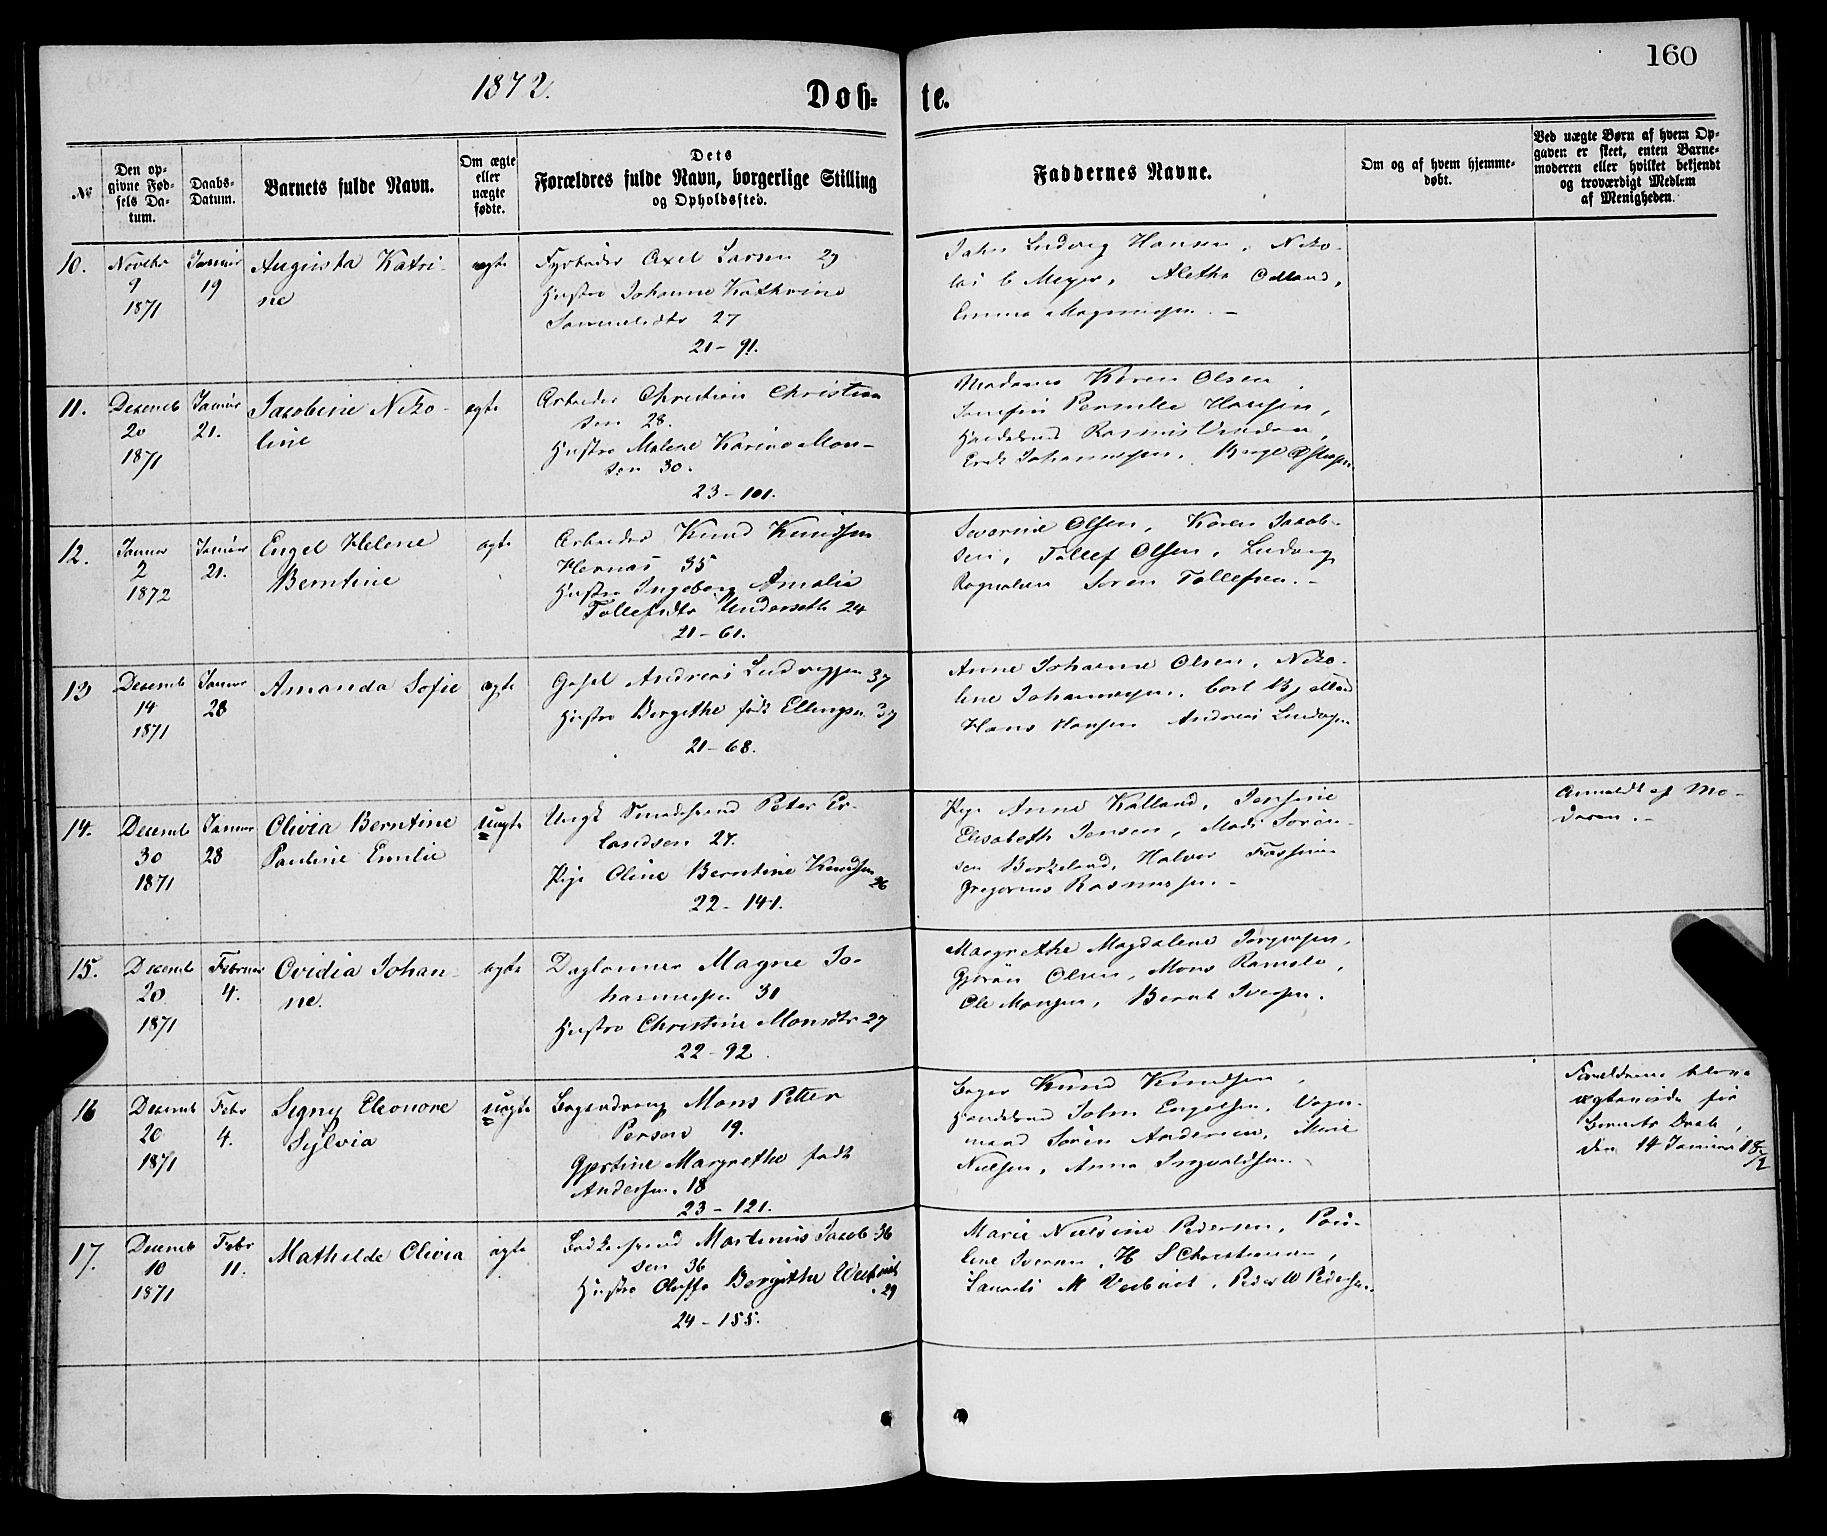 160
1872.
Døb-
te.
№
Den op-
givne Fød-
sels Da-
tum.
Daabs-
Datum.
Barnets fulde Navn.
Om ægte
eller
uægte
fødte.
Dets
Forældres fulde Navn, borgerlige Stilling
og Opholdssted.
Faddernes Navne.
Om og af hvem hjemme-
døbt.
Ved uægte Børn af hvem Op-
gaven er skeet, enten Barne-
moderen eller hvilket bekjendt
og troværdigt Medlem
af Menigheden.
10.
Novbr
9
1871
Januar
19
Augusta Katri-
ne
ægte
Fyrbøder Axel Larsen 29
Hustro Johanne Kathrine
27
21-91.
John Ludvig Hansen, Niko-
lai C Meyer, Aletha Odland,
Emma Magnusen.-
11.
Decemb
20
1871
Januar
21.
Jacobine Niko-
line
ægte
Arbeider Christian Christian
sen 28.
Hustro Malene Karine Mon-
sen 30.
23-101.
Madame Karen Olsen,
Pernille Hansen,
Rasmus
Johannesen,
12.
Januar
2
1872
Januar
21.
Engel Helene
Berntine
ægte
Arbeider Knud Knudsen
35
Hustro Ingeborg Amalia
24
21-61.
Severine Olsen, Karen Jacob-
sen, Tollef Olsen, Ludvig
Søren Tollefsen.-
13
Decemb
14
1871
Januar
28
Amanda Sofie
ægte
Andreas Ludvigsen 37
Hustro Bergithe født Ellingsen 37
21-68.
Anne Johanne Olsen, Niko-
line Johannesen,
Hans Hansen Andreas
14.
Decemb
30
1871
Januar
28
Olivia Berntine
Pauline Emilie
uægte
Ungk Smedsvend Peter Er-
landsen 27.
Pige Oline Berntine Knudsen
26
22-141.
Pige Anne Kalland, Jensine
Elisabeth Jensen, Mads Søren-
sen Birkeland, Halvor
Gregorius Rasmussen.-
Anmeldt af Mo-
deren.-
15.
Decemb
20
1871
Februar
4.
Ovidia Johan-
ne.
ægte
Daglønner Magne Jo-
hannesen 31
Hustro Christine Monsdtr 27
22-92.
Margrethe Magdalene Jørgensen,
Olsen, Mons
Ole Monsen, Bernt Iversen.
16
Decemb
20
1871
Febr
4.
Signy Eleonore
Sylvia
uægte
Mons Petter
Person 19.
Gjertine Margrethe født
Andersen. 18
23-121.
Bager Knud Knudsen,
John Engelsen, Vogn-
mand Søren Andersen, Marie
Nielsen, Anna Ingvaldsen
Forældrene bleve
ægteviede før
Barnets Daab,
den 14 Januar 18
72
17.
Decemb
10
1871
Febr
11.
Mathilde Olivia
ægte
Martinus Jacob 36
sen 36
Hustro Bergithe
29
24-155.
Marie Nielsine Pedersen, Pau-
line Iversen, H S Christensen,
Laurits M Peder W Pedersen.